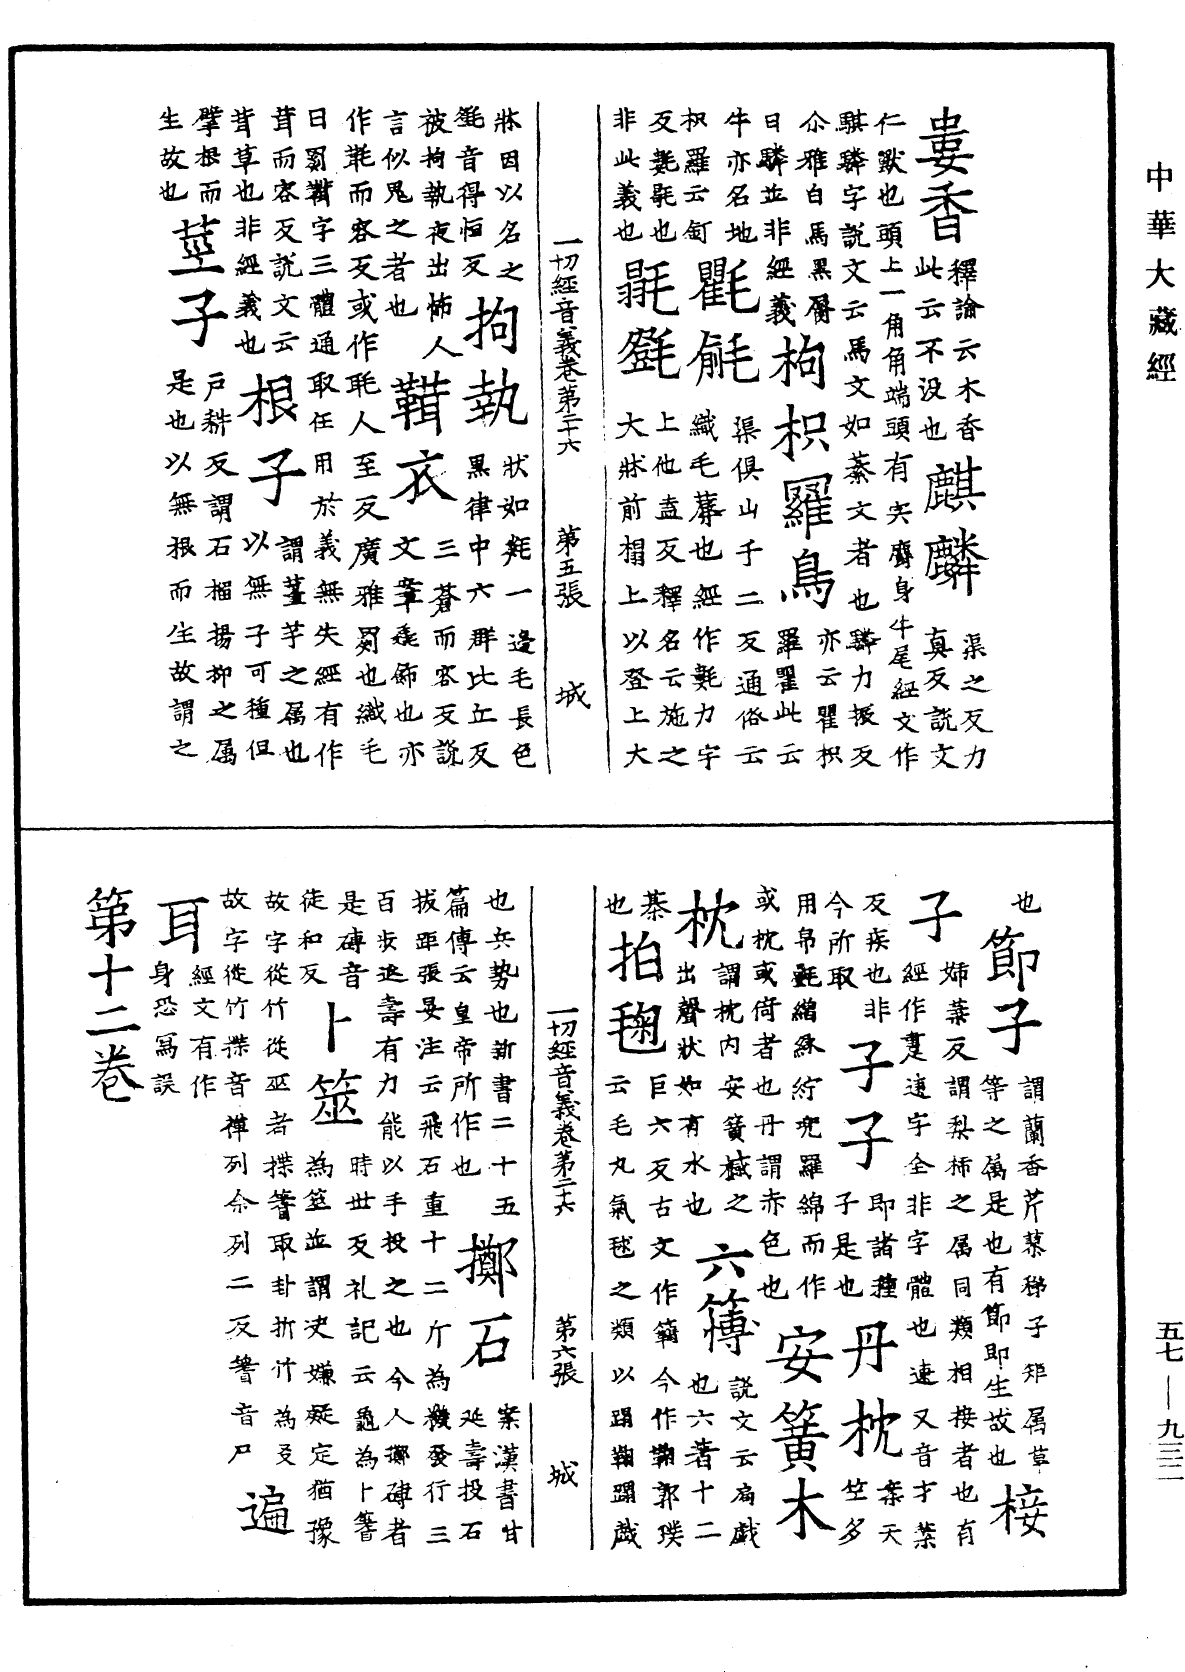 中華大藏經
婁香 釋論云木香
此云不没也 麒麟 渠之反力
真反説文
仁獸也頭上一角角端頭有宍麕身牛尾經文作
騏驎字説文云馬文如綦文者也驎力振反
尒雅白馬黑脣
曰驎並非經義 枸枳羅鳥 亦云瞿枳
羅瞿此云
牛亦名地
枳羅云釘 氍毹 渠俱山于二反通俗云
織毛蓐也經作氀力宇
反氀毼也
非此義也 毾㲪 上他盍反釋名云施之
大牀前榻上以登上大
一切經音義卷第二十六 第五張 城
牀因以名之
㲪音得恒反 拘執 狀如氈一邊毛長色
黑律中六群比丘反
被拘執夜出怖人
言似鬼之者也 衣 三蒼而容反説
文毳飾也亦
作而容反或作毦人至反廣雅罽也織毛
曰罽字三體通取任用於義無失經有作
茸而容反説文云
茸草也非經義也 根子 謂薑芋之属也
以無子可種但
擘根而
生故也 莖子 户耕反謂石榴揚抑之属
是也以無根而生故謂之
也 節子 謂蘭香芹蓼稊子矩属草
等之属是也有節即生故也 接
子 姊葉反謂梨柿之属同類相接者也有
經作疌速字全非字體也疌又音才葉
反疾也非
今所取 子子 即諸種
子是也 丹枕 案天
竺多
用帛氈繒綵紵兜羅綿而作
或枕或倚者也丹謂赤色也 安簧木
枕 謂枕内安簧之
出聲狀如有水也 六簙 説文云扁戯
也六著十二
棊
也 拍毱 巨六反古文作䥴今作鞠郭璞
云毛丸氣毬之類以蹋鞠蹋戯
一切經音義卷第二十六 第六張 城
也兵勢也新書二十五
篇傳云皇帝所作也 擲石 案漢書甘
延壽投石
拔距張晏注云飛石重十二斤為機發行三
百步延壽有力能以手投之也今人擲磚者
是磚音
徒和反 卜筮 時世反礼記云龜為卜蓍
為筮並謂决嫌疑定猶豫
故字從竹從巫者揲蓍取卦折竹為爻
故字從竹揲音禪列余列二反蓍音尸 遍
耳 經文有作
身恐寫誤
第十二卷
五七—九三二